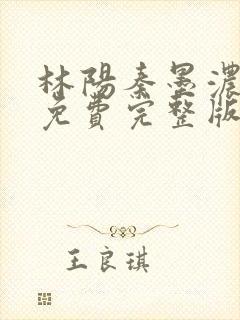 林陽秦墨濃
免費完整版
王良琪